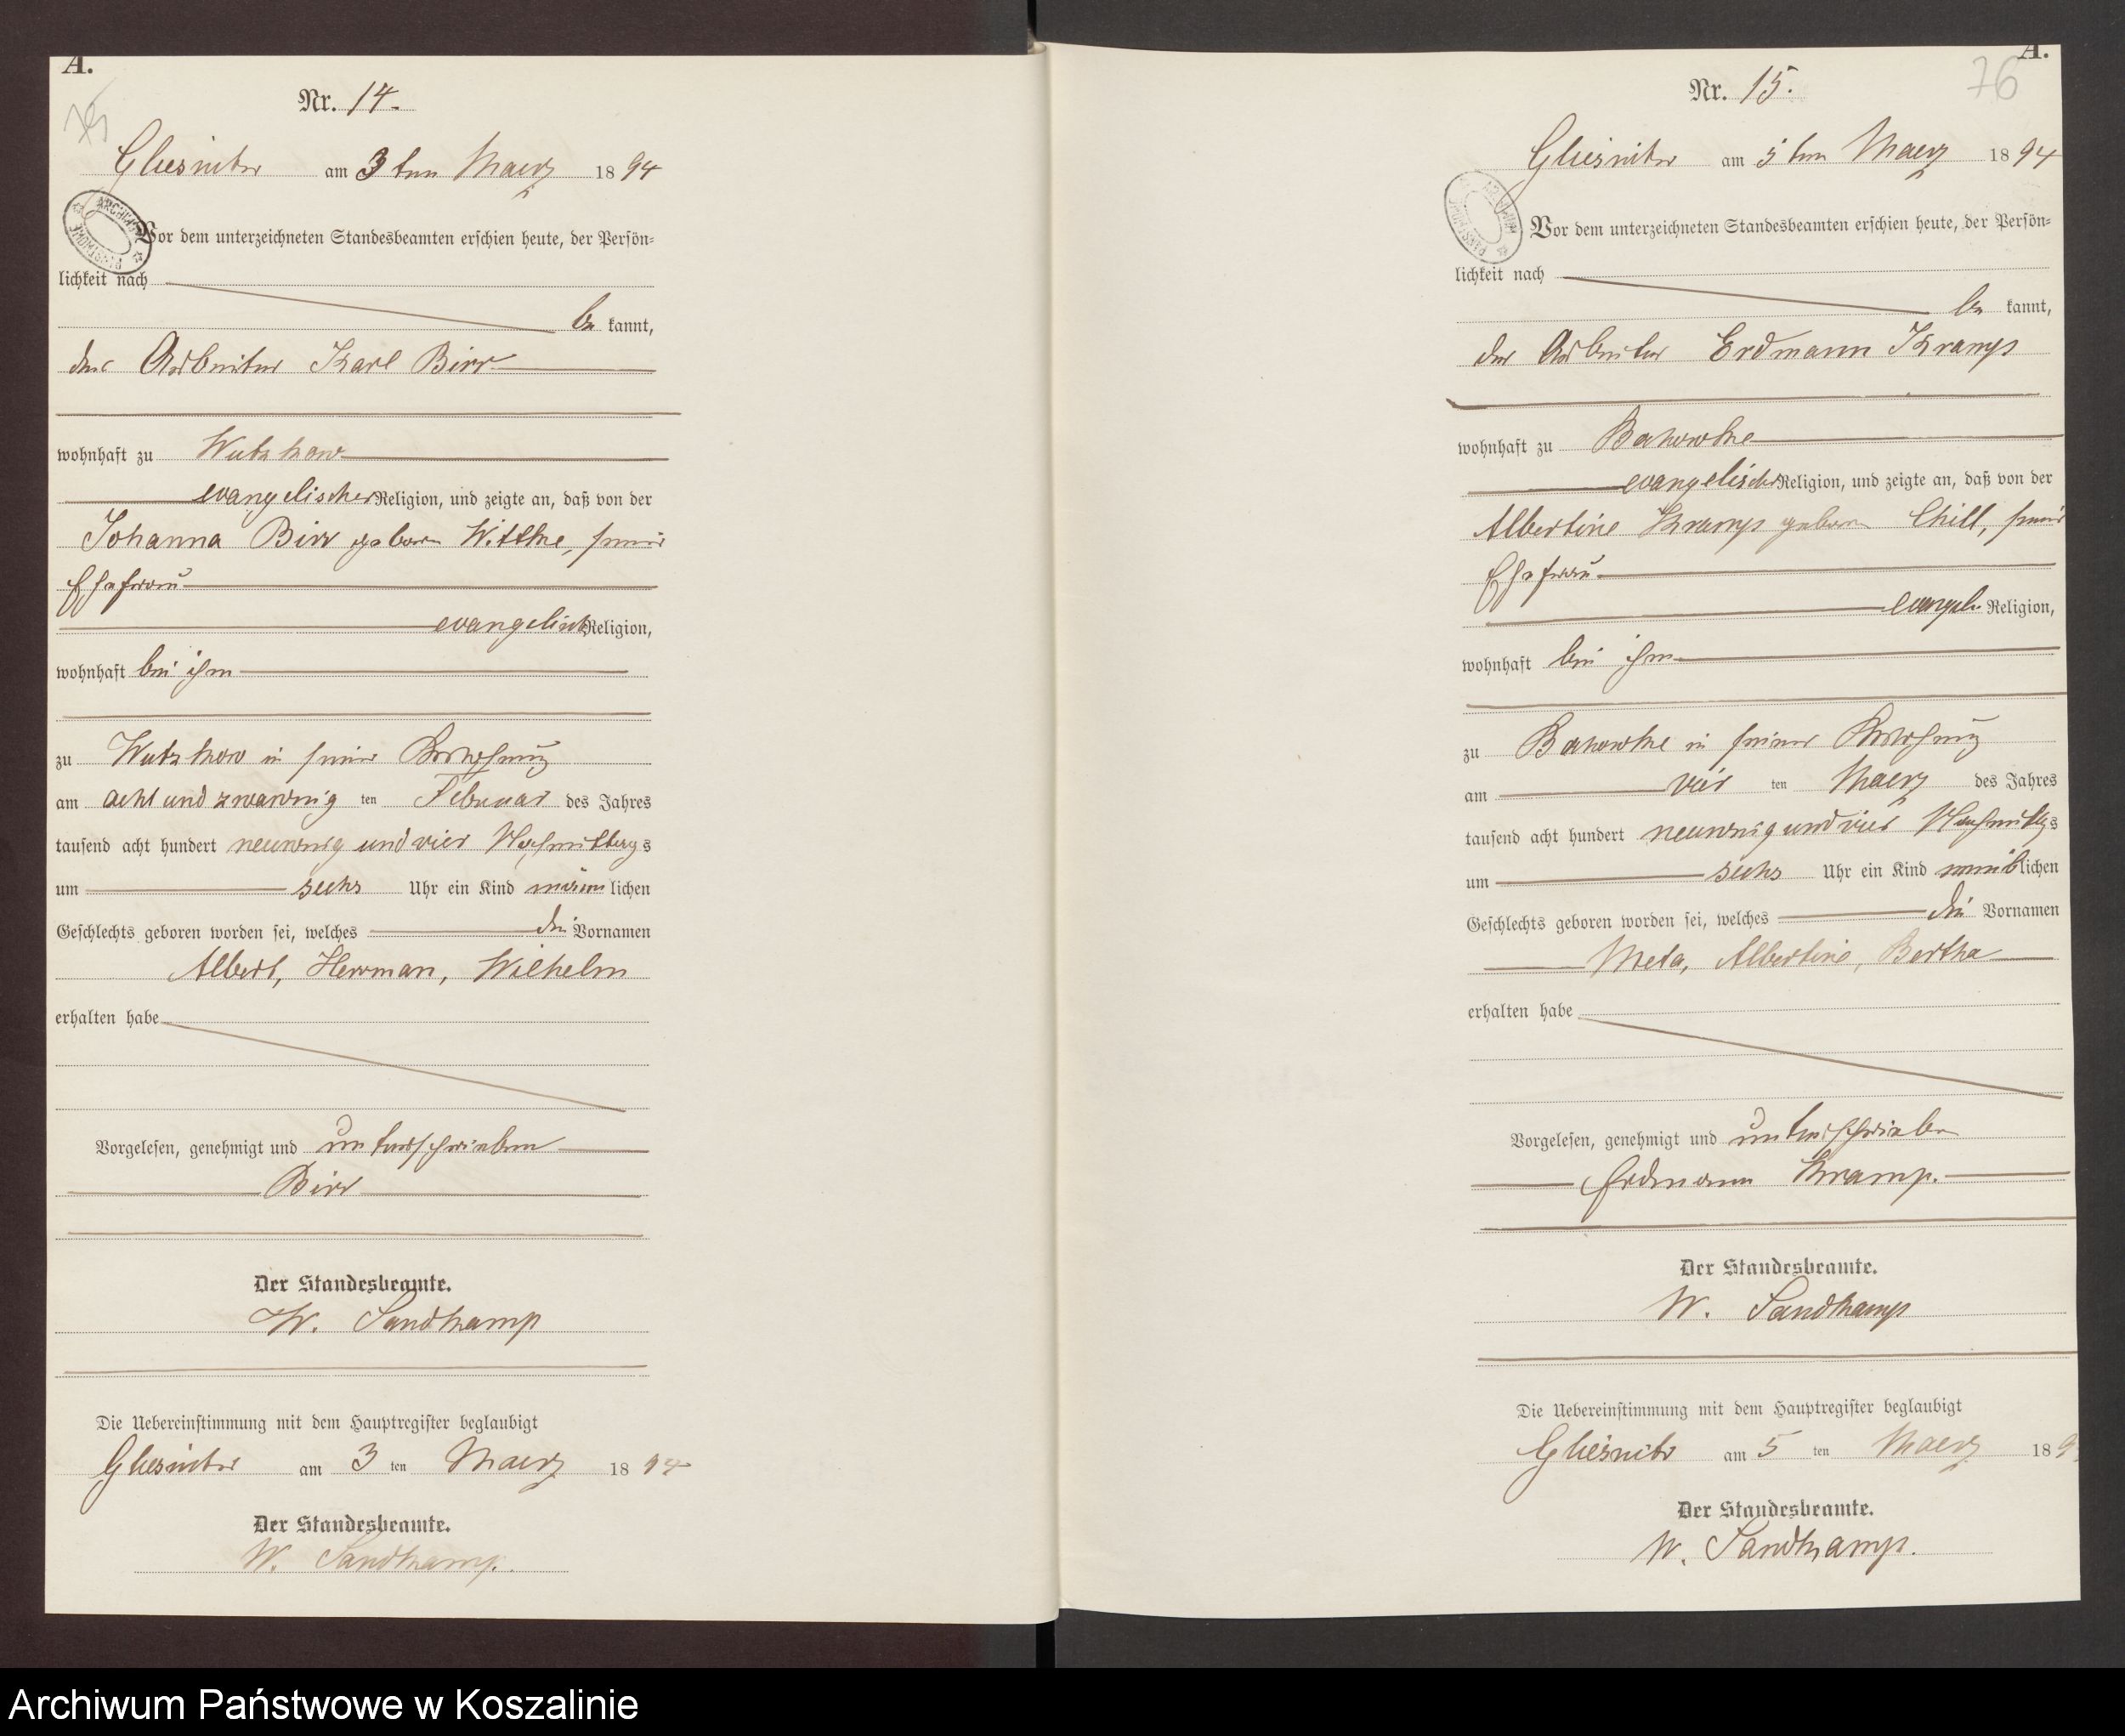 A.
75
Nr. 14.
Gliesnitz am 3ten Maerz 1894
Vor dem unterzeichneten Standesbeamten erschien heute, der Persön=
lichkeit nach
be kannt,
der Arbeiter Karl Birr
wohnhaft zu Wutzkow
evangelischer Religion, und zeigte an, daß von der
Johanna Birr geboren Wittke, seiner
Ehefrau
evangelisch Religion,
wohnhaft bei ihm
zu Wutzkow in seiner Wohnung
am acht und zwanzig ten Februar des Jahres
tausend acht hundert neunzig und vier Nachmittags
um sechs Uhr ein Kind männ lichen
Geschlechts geboren worden sei, welches die Vornamen
Albert, Herrman, Wilhelm
erhalten habe
Vorgelesen, genehmigt und unterschrieben
Birr
Der Standesbeamte.
W. Sandkamp
Die Uebereinstimmung mit dem Hauptregister beglaubigt
Gliesnitz am 3 ten Maerz 1894
Der Standesbeamte.
W. Sandkamp.
A.
76
Nr. 15.
Gliesnitz am 5ten Maerz 1894
Vor dem unterzeichneten Standesbeamten erschien heute, der Persön=
lichkeit nach
be kannt,
der Arbeiter Erdmann Kramp
wohnhaft zu Bochowke
evangelischer Religion, und zeigte an, daß von der
Albertine Kramp geboren Chill, seiner
Ehefrau
evangel. Religion,
wohnhaft bei ihm
zu Bochowke in seiner Wohnung
am vier ten Maerz des Jahres
tausend acht hundert neunzig und vier Nachmittags
um sechs Uhr ein Kind weiblichen
Geschlechts geboren worden sei, welches die Vornamen
Meta, Albertine, Bertha
erhalten habe
Vorgelesen, genehmigt und unterschrieben
Erdmann Kramp.
Der Standesbeamte.
W. Sandkamp
Die Uebereinstimmung mit dem Hauptregister beglaubigt
Gliesnitz am 5 ten Maerz 189
Der Standesbeamte.
W. Sandkamp.
Archiwum Państwowe w Koszalinie